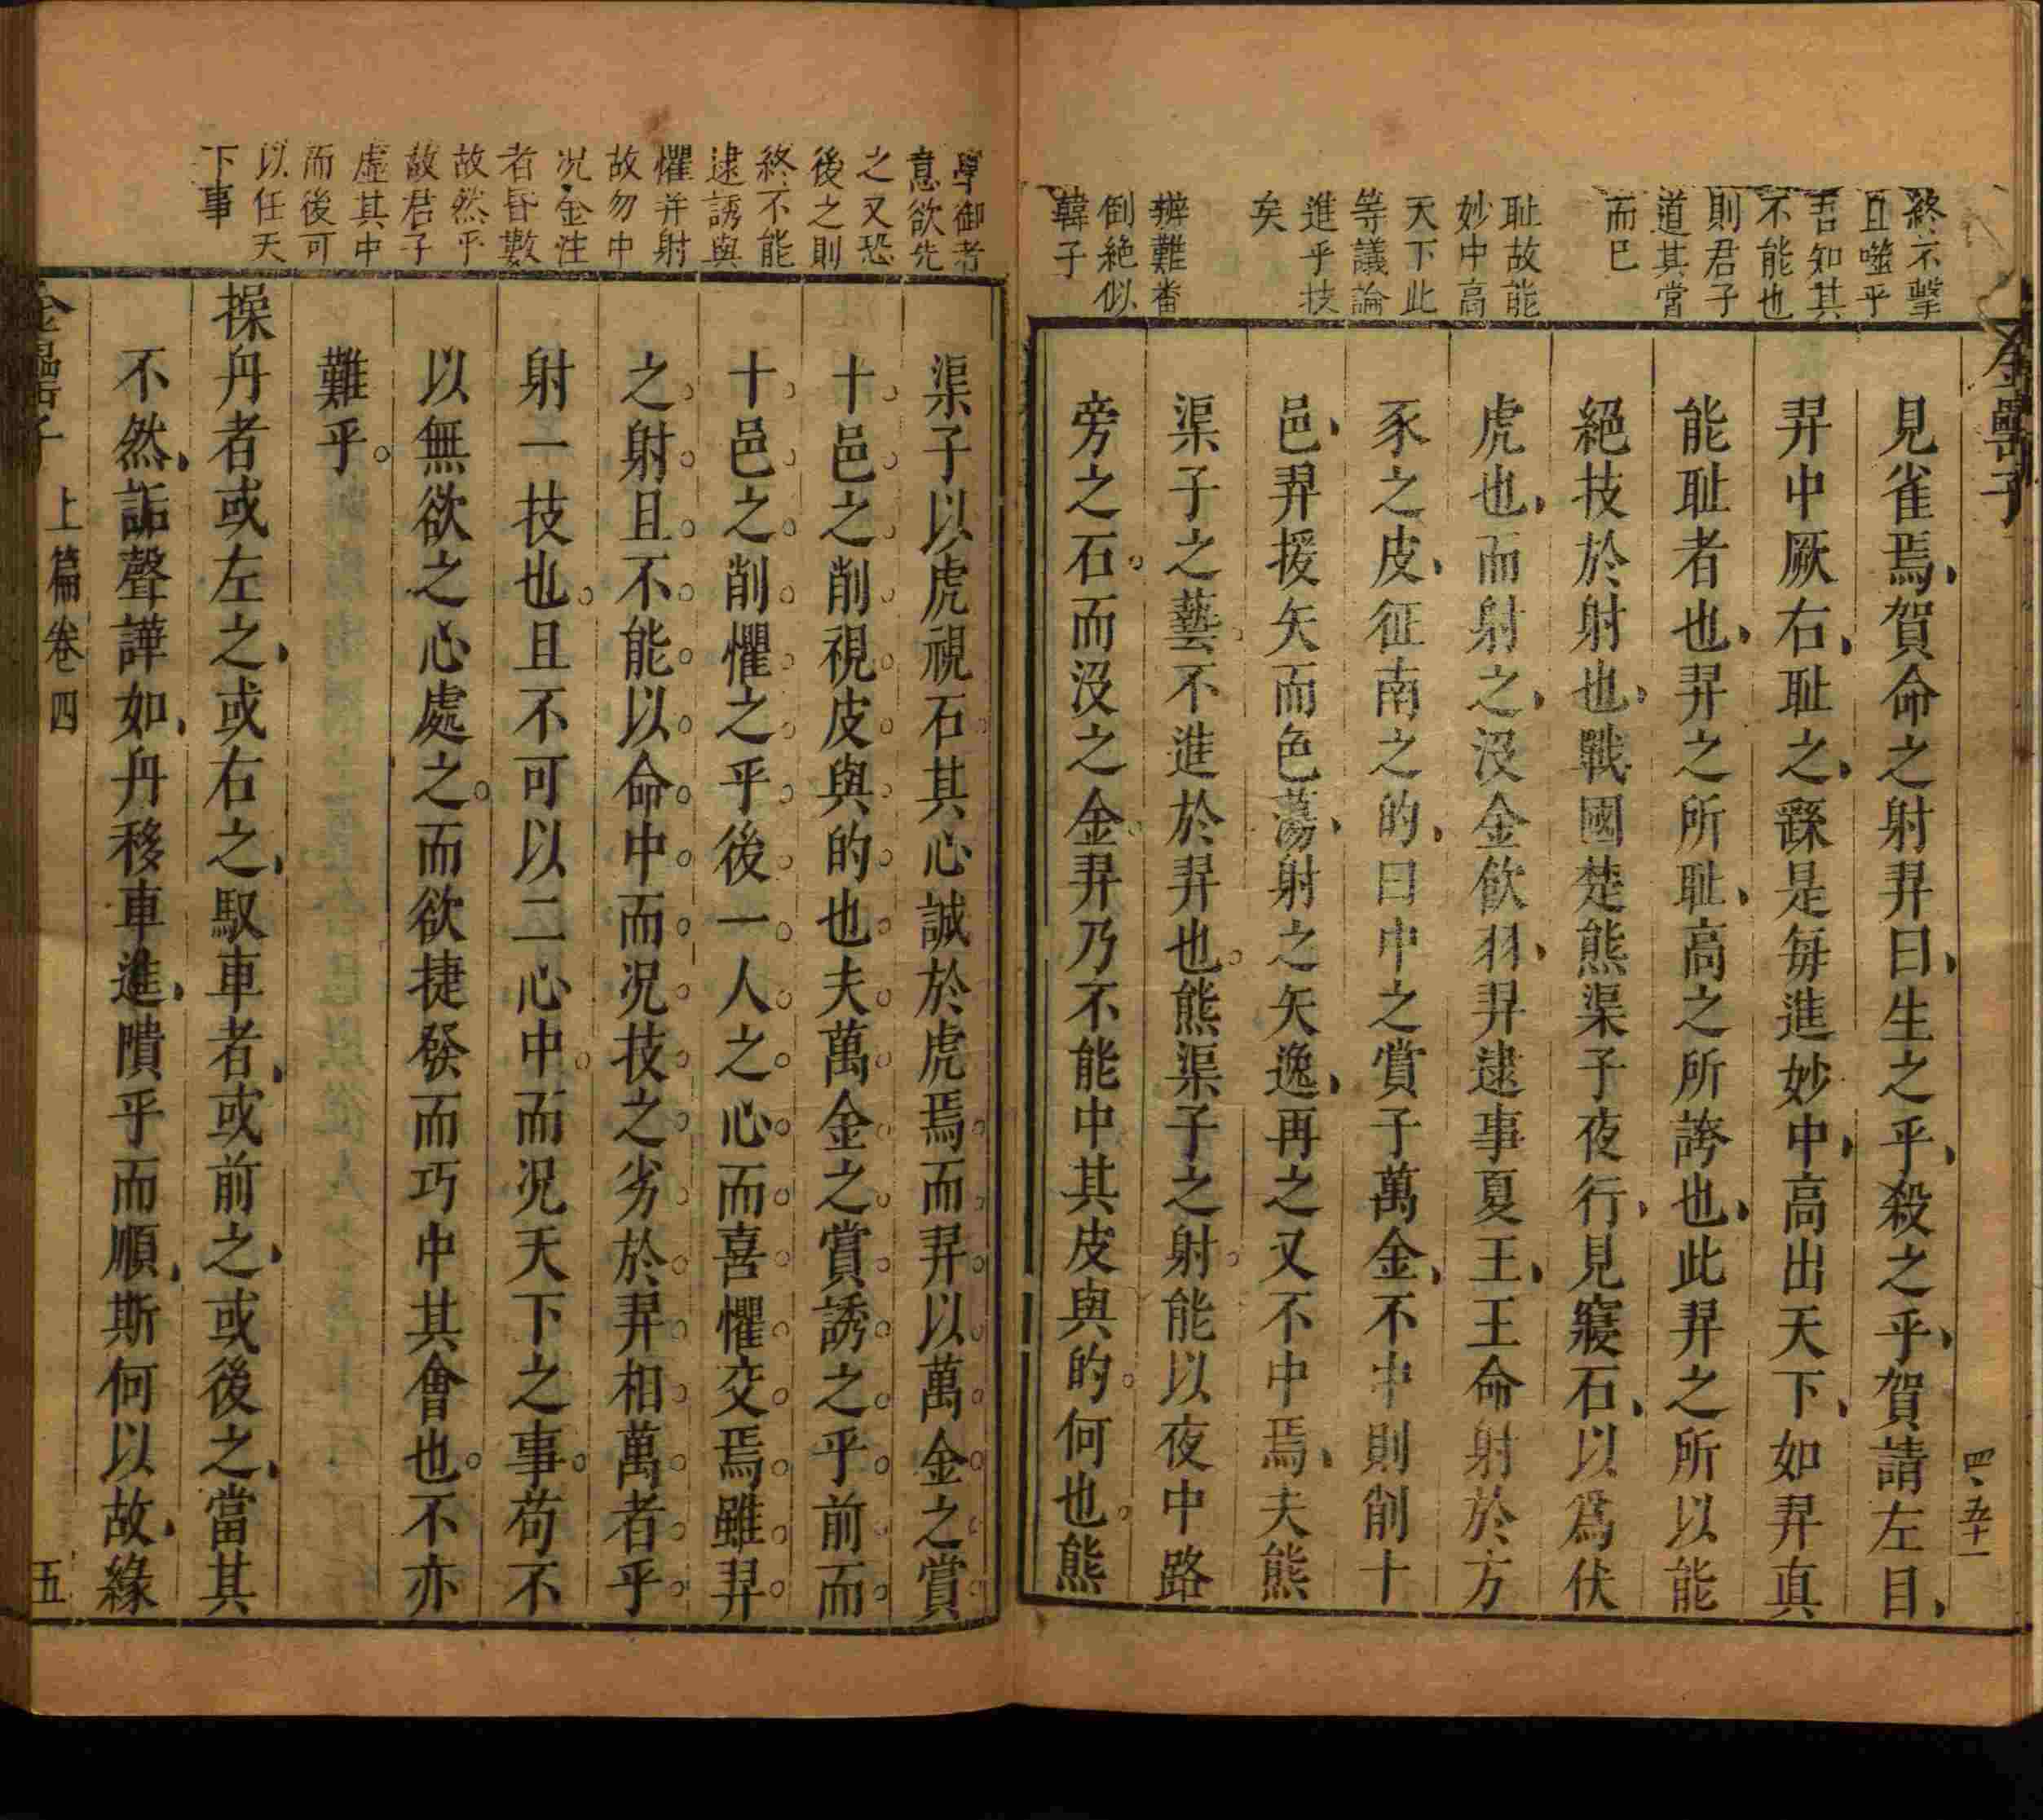 金罍子
四、五十一
終不擊
且噬乎
吾知其
不能也
則君子
道其常
而已
耻故能
妙中高
天下此
等議論
進乎技
矣
辨難畨
倒絶似
韓子
見雀焉賀命之射羿曰生之乎殺之乎賀請左目
羿中厥右耻之繇是每進妙中高出天下如羿真
能耻者也羿之所耻高之所誇也此羿之所以能
絕技於射也戰國楚熊渠子夜行見寢石以爲伏
虎也而射之沒金飲羽羿逮事夏王王命射於方
豕之皮征南之的曰中之賞子萬金不中則削十
邑羿援矢而色蕩射之矢逸再之又不中焉夫熊
渠子之藝不進於羿也熊渠子之射能以夜中路
旁之石而沒之金羿乃不能中其皮與的何也熊
學御者
意欲先
之又恐
後之則
終不能
逮誘與
懼并射
故勿中
况金注
者昏數
故然乎
故君子
虛其中
而後可
以任天
下事
渠子以虎視石其心誠於虎焉而羿以萬金之賞
十邑之削視皮與的也夫萬金之賞誘之乎前而
十邑之削懼之乎後一人之心而喜懼交焉雖羿
之射且不能以命中而况技之劣於羿相萬者乎
射一技也且不可以二心中而况天下之事苟不
以無欲之心處之而欲捷發而巧中其會也不亦
難乎
操舟者或左之或右之馭車者或前之或後之當其
不然詬聲譁如舟移車進隤乎而順斯何以故緣
金罍子
上篇卷四
五